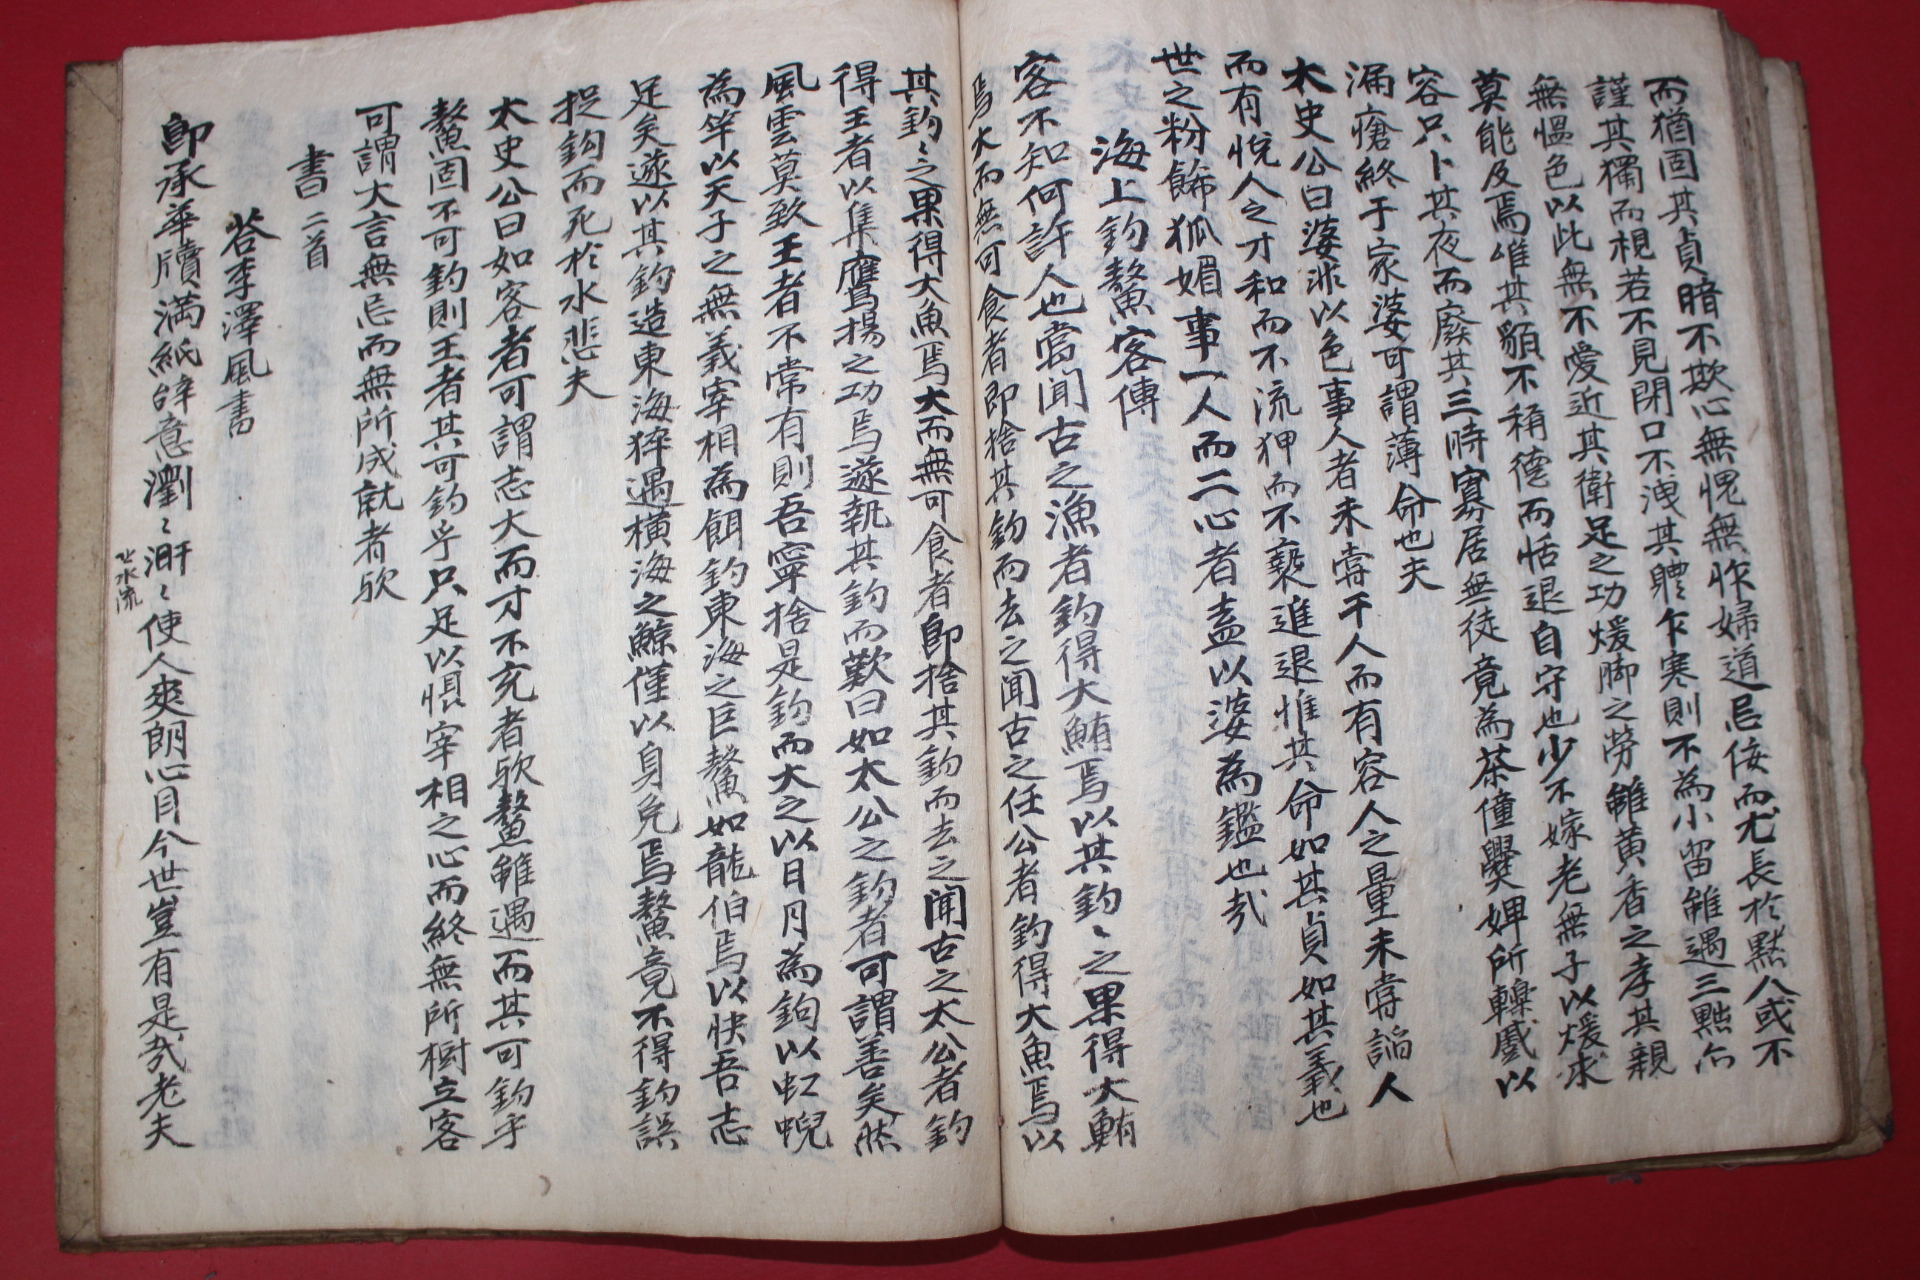 而猶固其貞暗不欺心無愧無怍婦道忌佞而尤長於黙人或不
謹其獨而視若不見閉口不洩其體乍寒則不為小留雖遇三點尒
無慍色以此無不愛近其衛足之功煖脚之勞雖黄香之孝其親
莫能及焉唯其貌不稱德而恬退自守也少不嫁老無子以煖求
容只卜其夜而廢其三時寡居無徒竟為茶僮爨婢所轢戲以
漏瘡終于家婆可謂薄命也夫
太史公曰婆非以色事人者未嘗干人而有容人之量未嘗謟人
而有悅人之才和而不流狎而不褻進退惟其命如其貞如其義也
世之粉餙狐媚事一人而二心者盍以婆為鑑也㢤
海上釣鰲客傳
客不知何許人也嘗聞古之漁者釣得大鮪焉以其釣〻之果得大鮪
焉大而無可食者即捨其釣而去之聞古之任公者釣得大魚焉以
其釣〻之果得大魚焉大而無可食者即捨其釣而去之聞古之太公者釣
得王者以集鷹揚之功焉遂執其釣而歎曰如太公之釣者可謂善矣然
風雲莫致王者不常有則吾寧捨是釣而大之以日月為鉤以虹蜺
為竿以天子之無義宰相為餌釣東海之巨鰲如龍伯焉以快吾志
足矣遂以其釣造東海猝遇橫海之鯨僅以身免焉鰲竟不得釣誤
捉鉤而死於水悲夫
太史公曰如客者可謂志大而才不充者歟鰲雖遇而其可釣乎
鰲固不可釣則王者其可釣乎只足以惧宰相之心而終無所樹立客
可謂大言無忌而無所成就者歟
書 二首
答李澤風書
即承華牘滿紙辞意瀏〻汧〻使人爽朗心目今世豈有是㢤老夫
水流